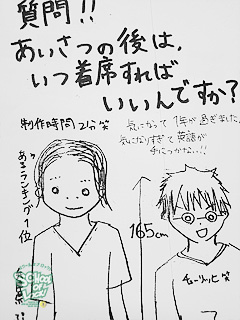 質問!!
あいさつの後は、
いつ着席すれば
いいんですか?
制作時間2分笑
気になって1年が過ぎました。
気になりすぎて英語が
手につかない…!!
あるランキング1位
165cm
チューリッヒ笑